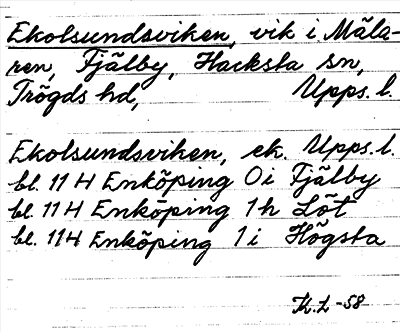 Ekolsundsviken, vik i Mäla-
ren, Fjälby, Hacksta sn,
Trögds hd, Upps. l.
Ekolsundsviken, ek. Upps. l.
bl. 11 H Enköping 0 i Fjälby
bl. 11 H Enköping 1 h Löt
bl. 11 H Enköping 1 i Högsta
K. L -58